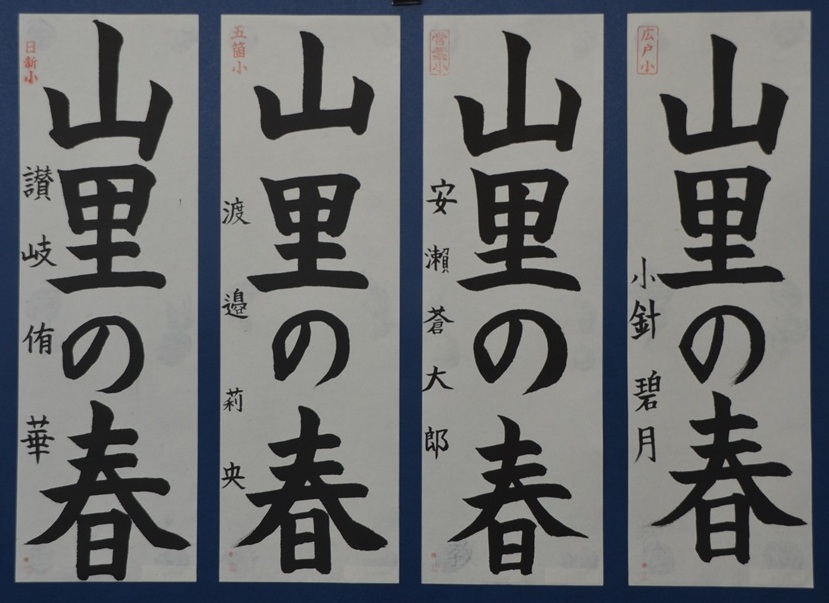 山里の春
広戸小
小針碧月
山里の春
安瀬蒼大郎
山里の春
五箇小
渡邉莉央
山里の春
日新小
讃岐侑華